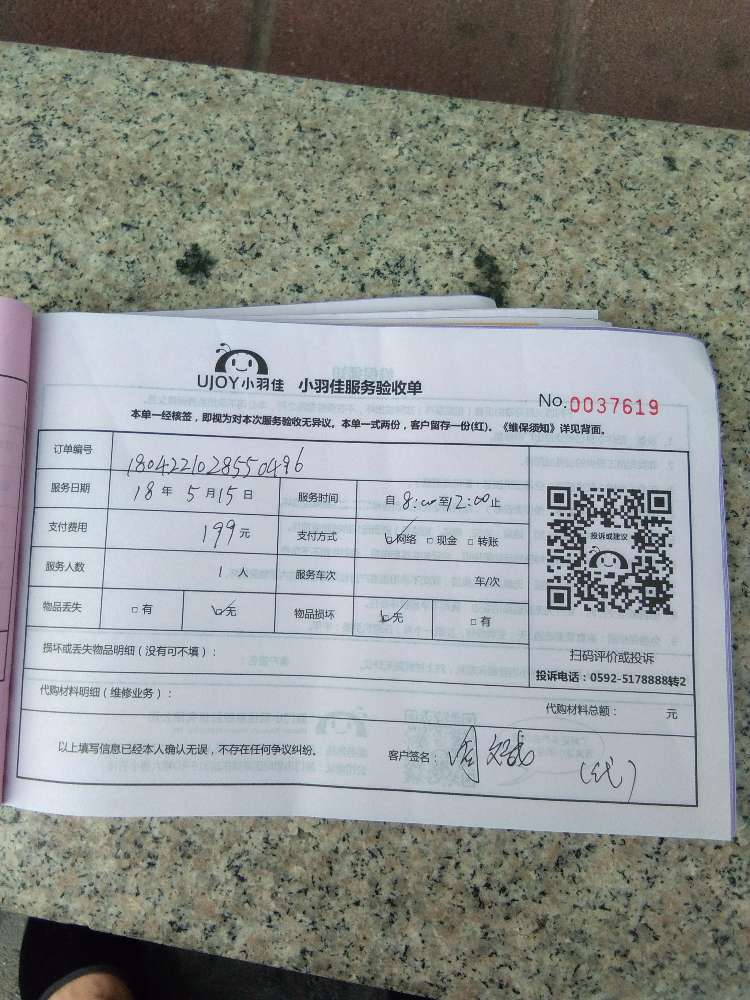 UJOY小羽佳 小羽佳服务验收单
No.0037619
本单一经核签，即视为对本次服务验收无异议。本单一式两份，客户留存一份(红)。《维保须知》详见背面。
订单编号 1804221028550496
服务日期 18年5月15日 服务时间 自8:00至12:00止
支付费用 199元 支付方式 ☑网络 □现金 □转账
服务人数 1人 服务车次 车/次
物品丢失 □有 ☑无 物品损坏 ☑无 □有
投诉或建议
扫码评价或投诉
投诉电话：0592-5178888转2
损坏或丢失物品明细（没有可不填）：
代购材料明细（维修业务）：
代购材料总额： 元
以上填写信息已经本人确认无误，不存在任何争议纠纷。 客户签名： (代)